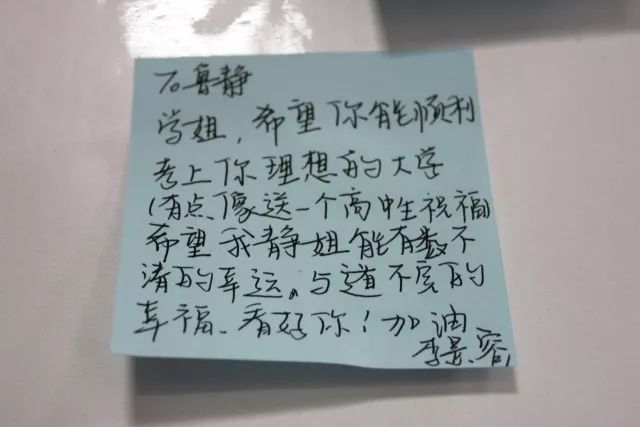 To 鲁静
学姐，希望你能顺利
考上你理想的大学
(有点像送一个高中生祝福)
希望我静姐能有数不
清的幸运。与道不尽的
幸福、看好你！加油
李景容